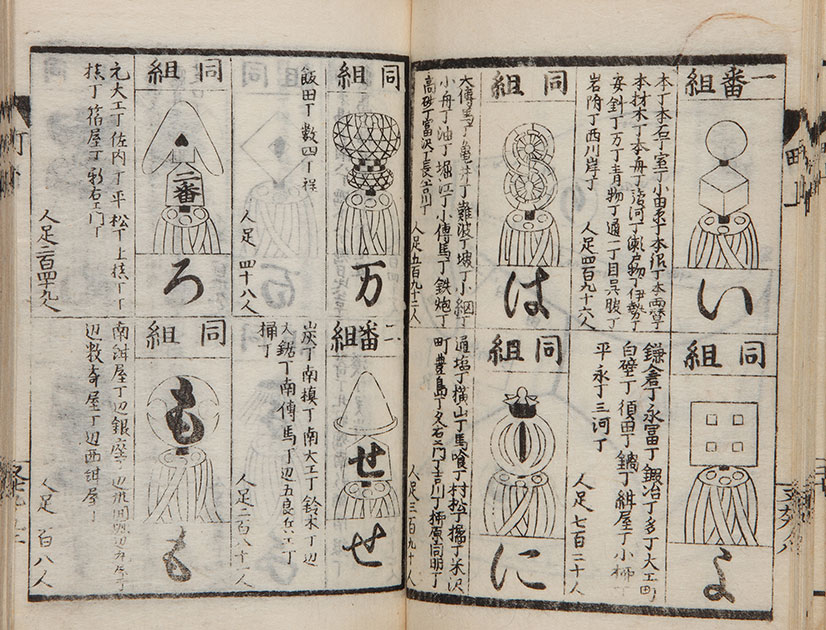 一番組
い
本丁本石丁室丁小田原丁本
本材木丁本舟丁
安針丁万丁青物丁通一丁目呉服丁
岩附丁西川岸丁
人足四百九十六人
同組
よ
鎌倉丁永富丁鍛冶丁多丁大工町
白壁丁須田丁鍋丁紺屋丁小柳丁
平永丁三河丁
人足七百二十人
同組
は
大傳馬丁亀井丁難波丁坂丁小網丁
小舟丁油丁堀江丁小傳馬丁鉄炮丁
高砂丁富沢丁長谷川丁
人足五百九十二人
同組
に
通塩丁横山丁馬喰丁村松丁橘丁米沢
町豊島丁久右エ門丁吉川丁柳原同朋丁
同組
万
飯田丁数四丁程
人足四十八人
二番組
せ
せ
炭丁南槙丁南大工丁鈴木丁辺
大鋸丁南傳馬丁辺五良兵エ丁
桶丁
同組
二番
ろ
元大工丁佐内丁平松丁上槙丁
槙丁箔屋丁新右エ門丁
人足二百四十九人
同組
も
も
南紺屋丁辺銀座
辺数寄屋丁辺西紺屋
人足百八人